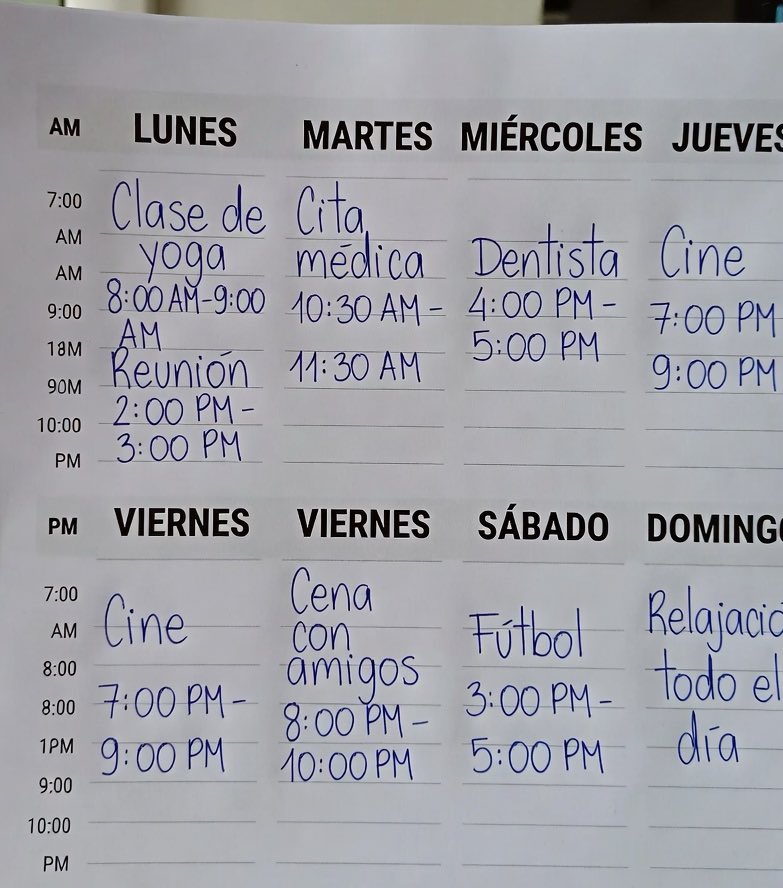 AM LUNES MARTES MIÉRCOLES JUEVES
7:00
AM
AM
9:00
18M
90M
10:00
PM
Clase de
yoga
8:00 AM-9:00
AM
Reunión
2:00 PM-
3:00 PM
Cita
médica
10:30 AM-
11:30 AM
Dentista
4:00 PM-
5:00 PM
Cine
7:00 PM
9:00 PM
PM VIERNES VIERNES SÁBADO DOMINGO
7:00
AM
8:00
8:00
1PM
9:00
10:00
PM
Cine
7:00 PM-
9:00 PM
Cena
con
amigos
8:00 PM-
10:00 PM
Fútbol
3:00 PM-
5:00 PM
Relajació
todo el
día